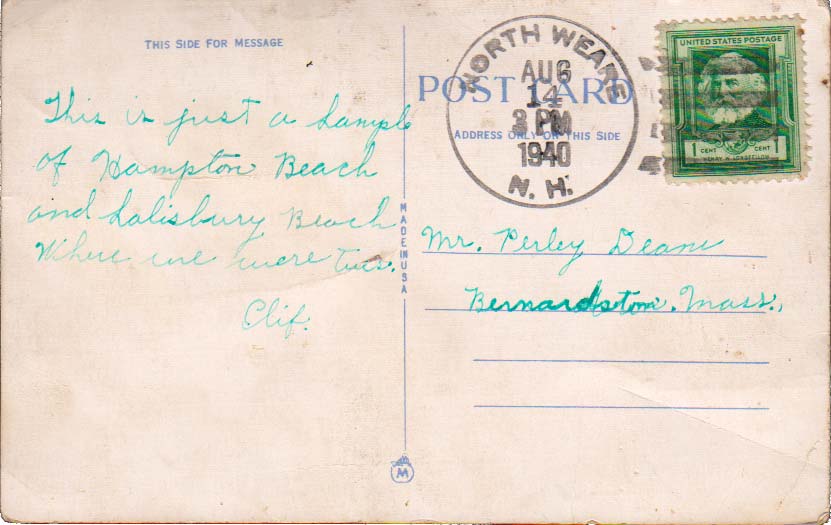 THIS SIDE FOR MESSAGE
This is just a sample
of Hampton Beach
and Salisbury Beach
Where we were tues.
Clif.
MADE IN USA
M
POST CARD
ADDRESS ONLY ON THIS SIDE
NORTH WEARE
AUG
14
3 PM
1940
N. H.
UNITED STATES POSTAGE
1 CENT CENT 1
HENRY W. LONGFELLOW
Mr. Perley Deane
Bernardston. Mass.,